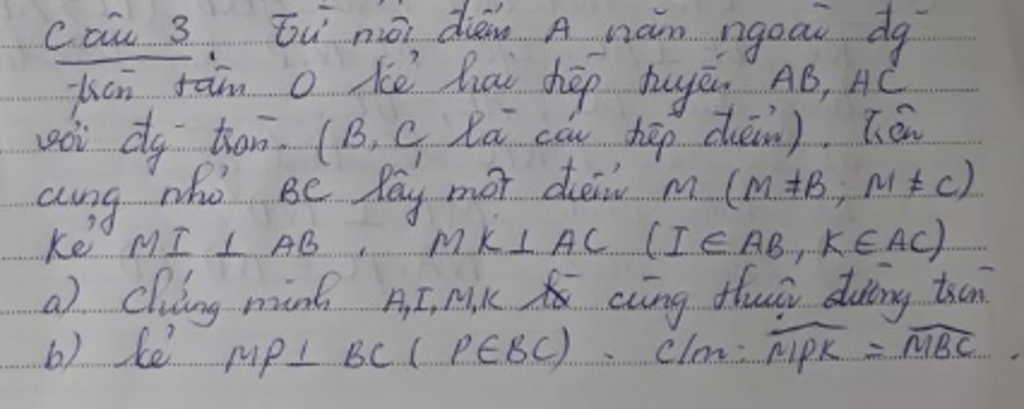 Câu 3. Từ một điểm A nằm ngoài đg
tròn tâm O kẻ hai tiếp tuyến AB, AC
với đg tròn. (B, C là các tiếp điểm). Trên
cung nhỏ BC lấy một điểm M (M ≠ B; M ≠ C)
Kẻ MI ⊥ AB, MK ⊥ AC (I ∈ AB, K ∈ AC)
a) Chứng minh A, I, M, K cùng thuộc đường tròn
b) kẻ MP ⊥ BC (P ∈ BC). C/m: \widehat{MPK} = \widehat{MBC}.